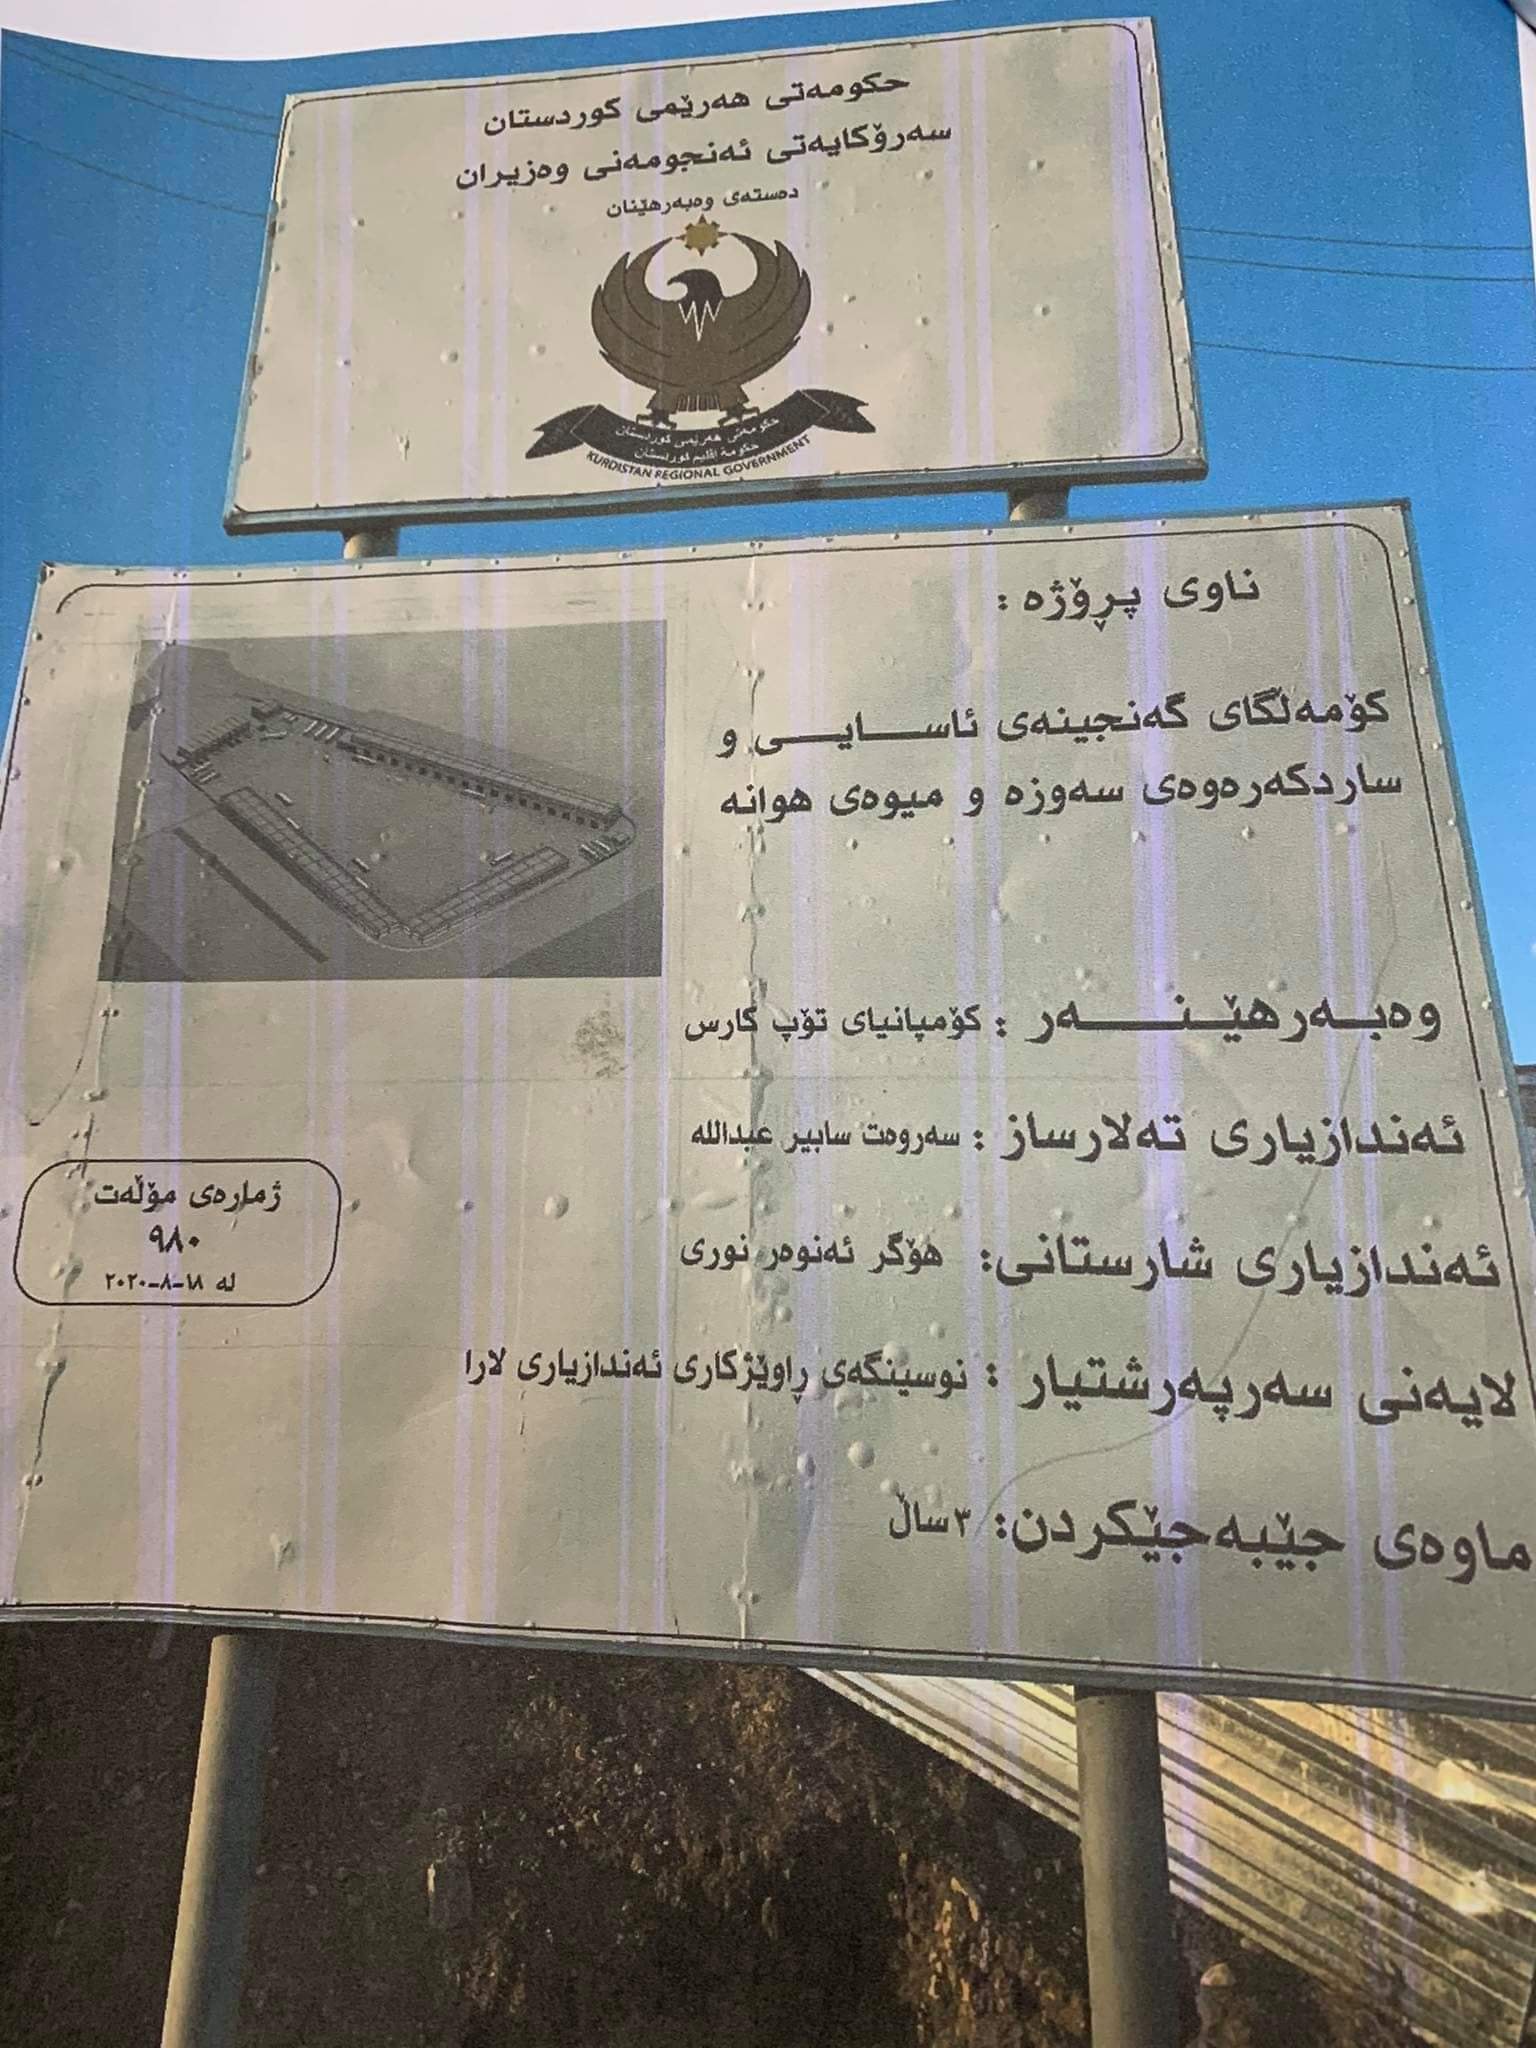 حکومەتی هەرێمی کوردستان
سەرۆکایەتی ئەنجومەنی وەزیران
دەستەی وەبەرهێنان
حکومەتی هەرێمی کوردستان
حکومة اقلیم کوردستان
KURDISTAN REGIONAL GOVERNMENT
ناوی پڕۆژە :
کۆمەڵگای گەنجینەی ئاســـایـــی و
ساردکەرەوەی سەوزە و میوەی هوانە
وەبــەرهێــنــــەر : کۆمپانیای تۆپ کارس
ئەندازیاری تەلارساز : سەروەت سابیر عبدالله
ئەندازیاری شارستانی: هۆگر ئەنوەر نوری
لایەنی سەرپەرشتیار : نوسینگەی ڕاوێژکاری ئەندازیاری لارا
ماوەی جێبەجێکردن: ٣ ساڵ
ژمارەی مۆڵەت
٩٨٠
لە ١٨-٨-٢٠٢٠